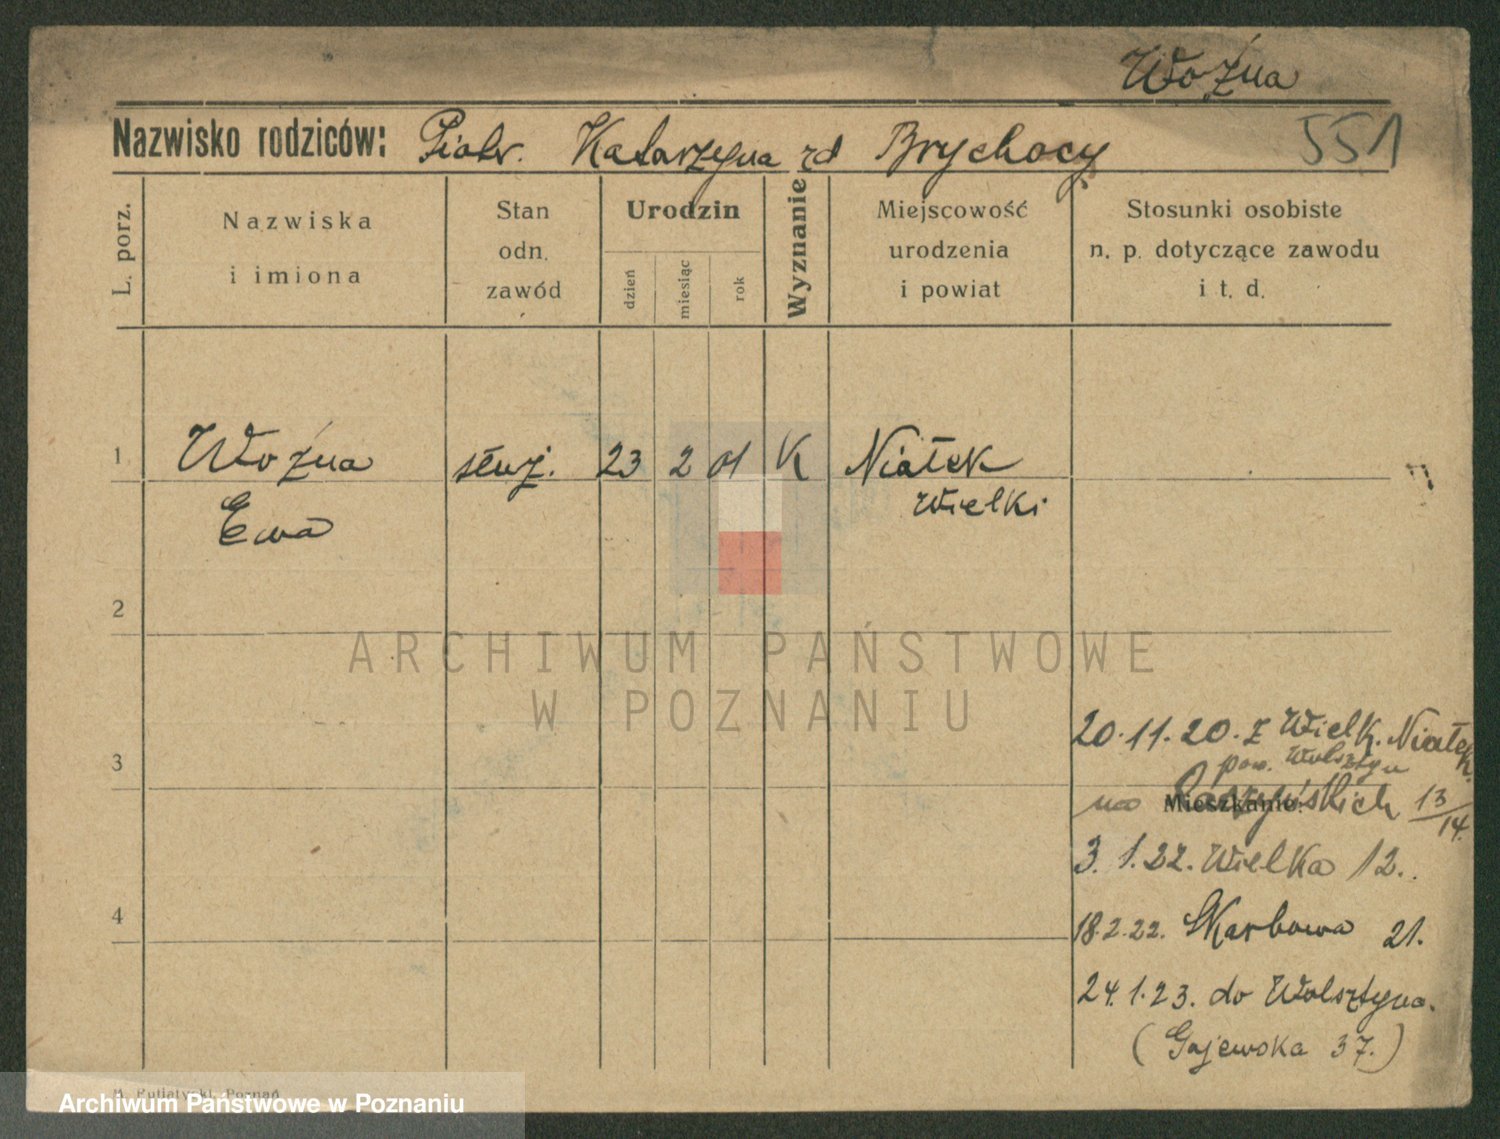 Woźna
Nazwisko rodziców: Piotr. Katarzyna zd Brychocy
551
L. porz.
Nazwiska
i imiona
Stan
odn.
zawód
Urodzin
dzień
miesiąc
rok
Wyznanie
Miejscowość
urodzenia
i powiat
Stosunki osobiste
n. p. dotyczące zawodu
i t. d.
1 Woźna służ. 23 2 01 K Niałek
Ewa Wielki
2
ARCHIWUM PAŃSTWOWE
W POZNANIU
20.11.20. z Wielk. Niałek
pow. Wolsztyn
3
na 13/14.
Mieszkanie:
3.1.22. Wielka 12.
4
18.2.22. Skarbowa 21.
24.1.23. do Wolsztyna.
(Gajewska 37.)
Poznań
Archiwum Państwowe w Poznaniu